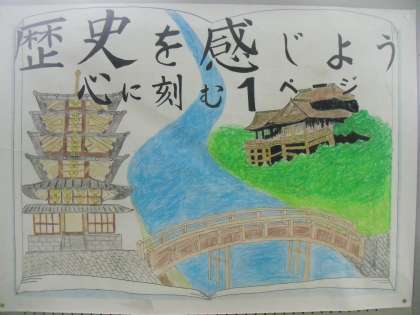 歴史を感じよう
心に刻む1ページ